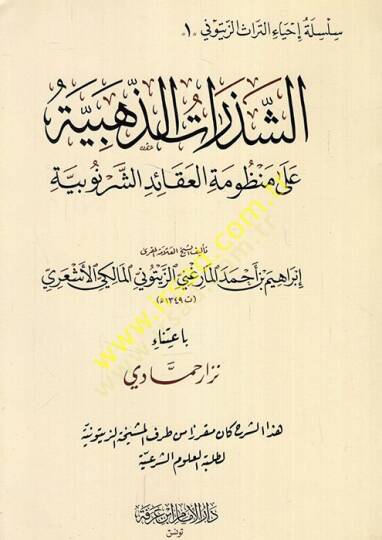 سلسلة إحياء التراث الزيتوني *١*
الشذرات الذهبية
على منظومة العقائد الشرنوبية
تأليف الشيخ العلامة المقرئ
إبراهيم بن أحمد المارغني الزيتوني المالكي الأشعري
(ت ١٣٤٩ه)
باعتناء
نزار حمادي
هذا الشرح كان مقررا من طرف المشيخة الزيتونية
لطلبة العلوم الشرعية
دار الإمام ابن عرفة
تونس